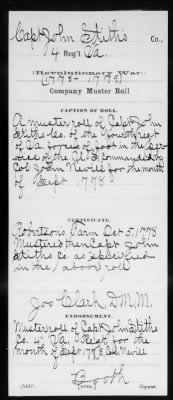 Capt John Stith's Co.,
4 Reg't Va.
(Revolutionary War)
(1778-1779)
Company Muster Roll
CAPTION OF ROLL.
A muster roll of Capt John
Stiths Co. of the Fourth regt
of Va. forces of foot in the ser-
vice of the U.S. commanded by
Col John Nevill for the month
of Sept 1778
CERTIFICATE.
Robertson's Farm Oct 5, 1778
Mustered then Capt John
Stiths Co as specified
in the above roll
Jos Clark D.M.M.
ENDORSEMENT.
Muster roll of Capt John Stiths
Co. 4 Va. Regt for the
month of Sept 1778 Col Nevill
Booth
Copyist.